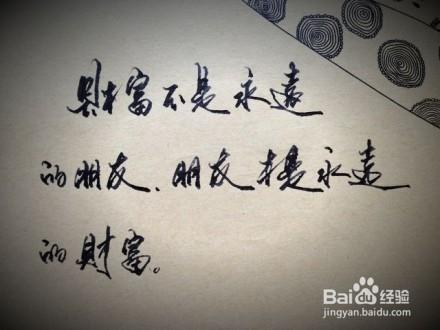 財富不是永遠
的朋友、朋友才是永遠
的財富。
Bai 经验
jingyan.baidu.com